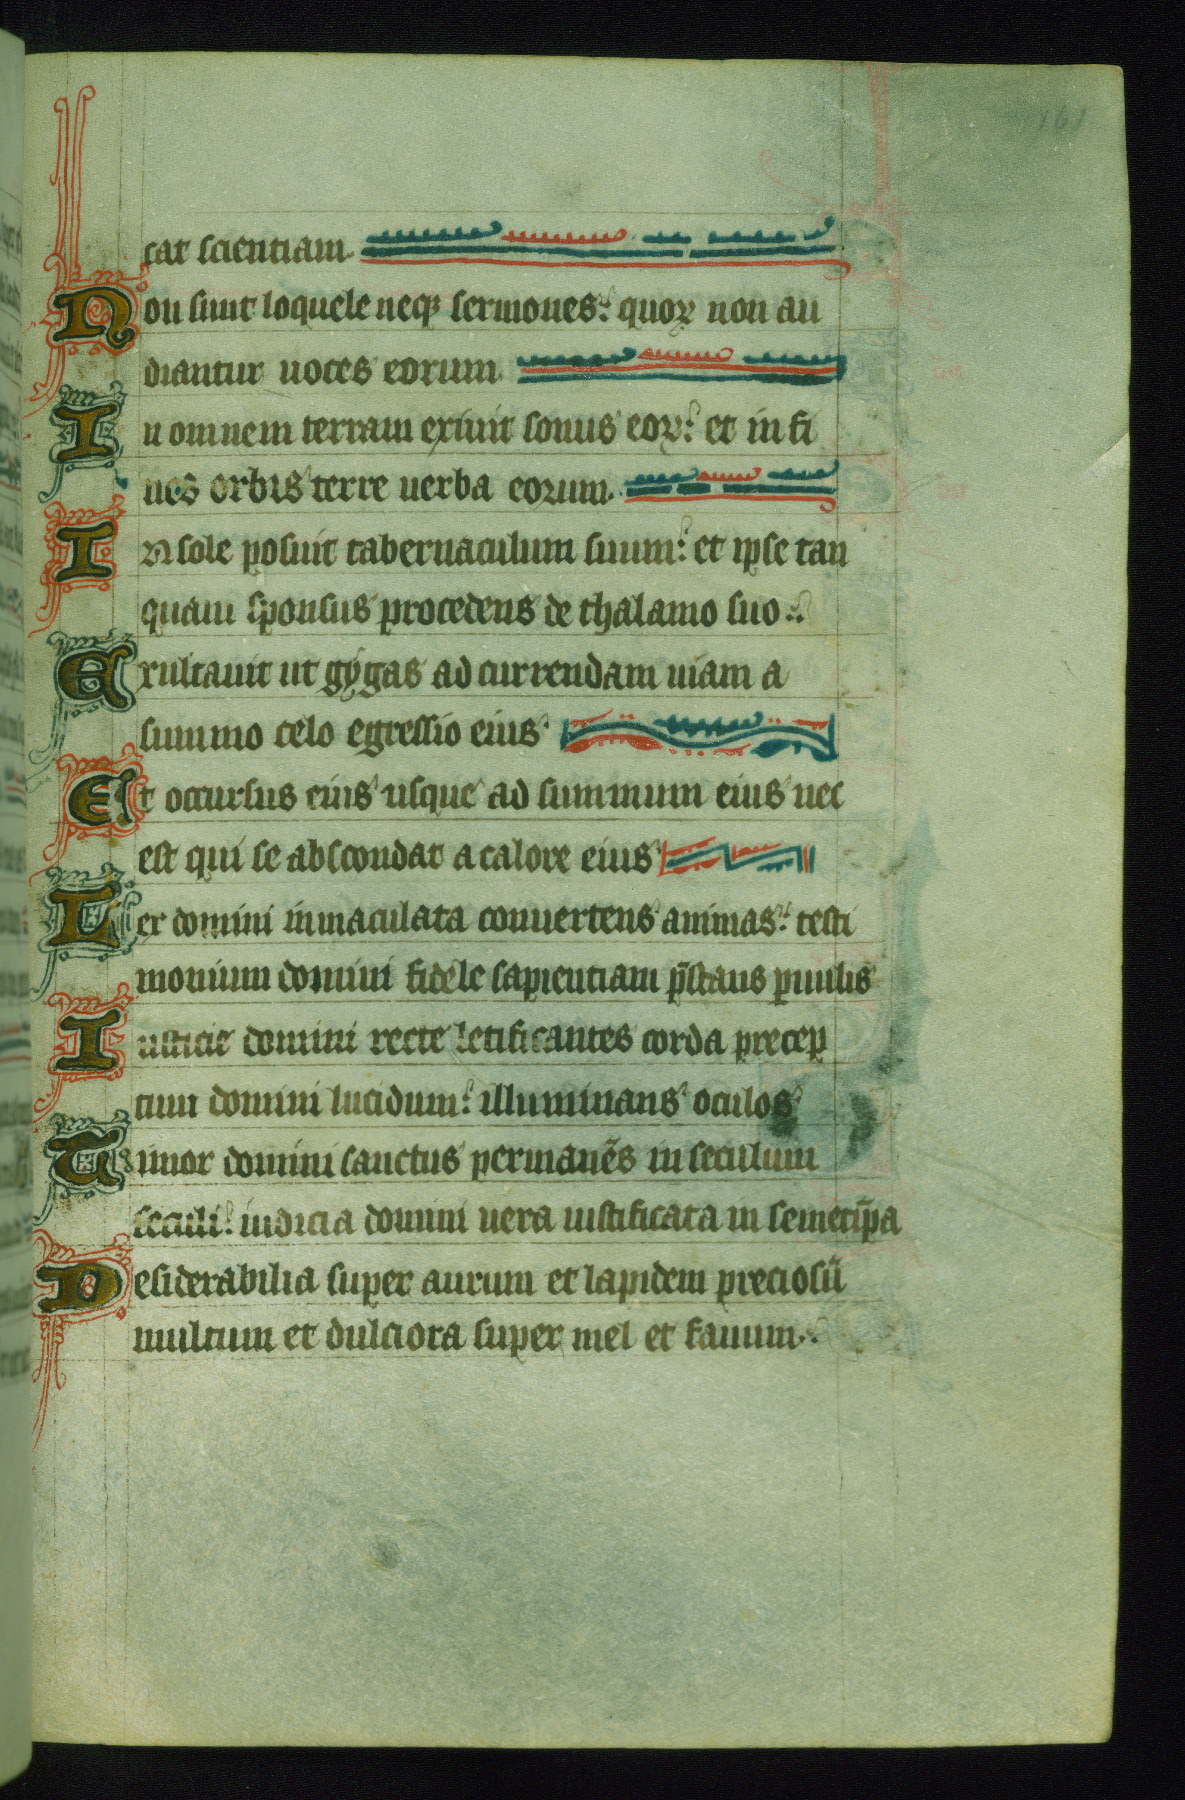 161
cat scientiam.
Non sunt loquele neqꝫ sermones: quoꝝ non au
diantur uoces eorum
In omnem terram exiuit sonus eoꝝ: et in fi
nes orbis terre uerba eorum.
In sole posuit tabernaculum suum: et ipse tan
quam sponsus procedens de thalamo suo..
Exultauit ut gygas ad currendam uiam a
summo celo egressio eius.
Et occursus eius usque ad summum eius nec
est qui se abscondat a calore eius
Lex domini inmaculata conuertens animas: testi
monium domini fidele sapientiam p̄stans ꝑuulis
Iusticie domini recte letificantes corda precep
tum domini lucidum: illuminans oculos
Timor domini sanctus permanēs in seculum
seculi: iudicia domini uera iustificata in semetip̄a
Desiderabilia super aurum et lapidem preciosū
multum et dulciora super mel et fauum..